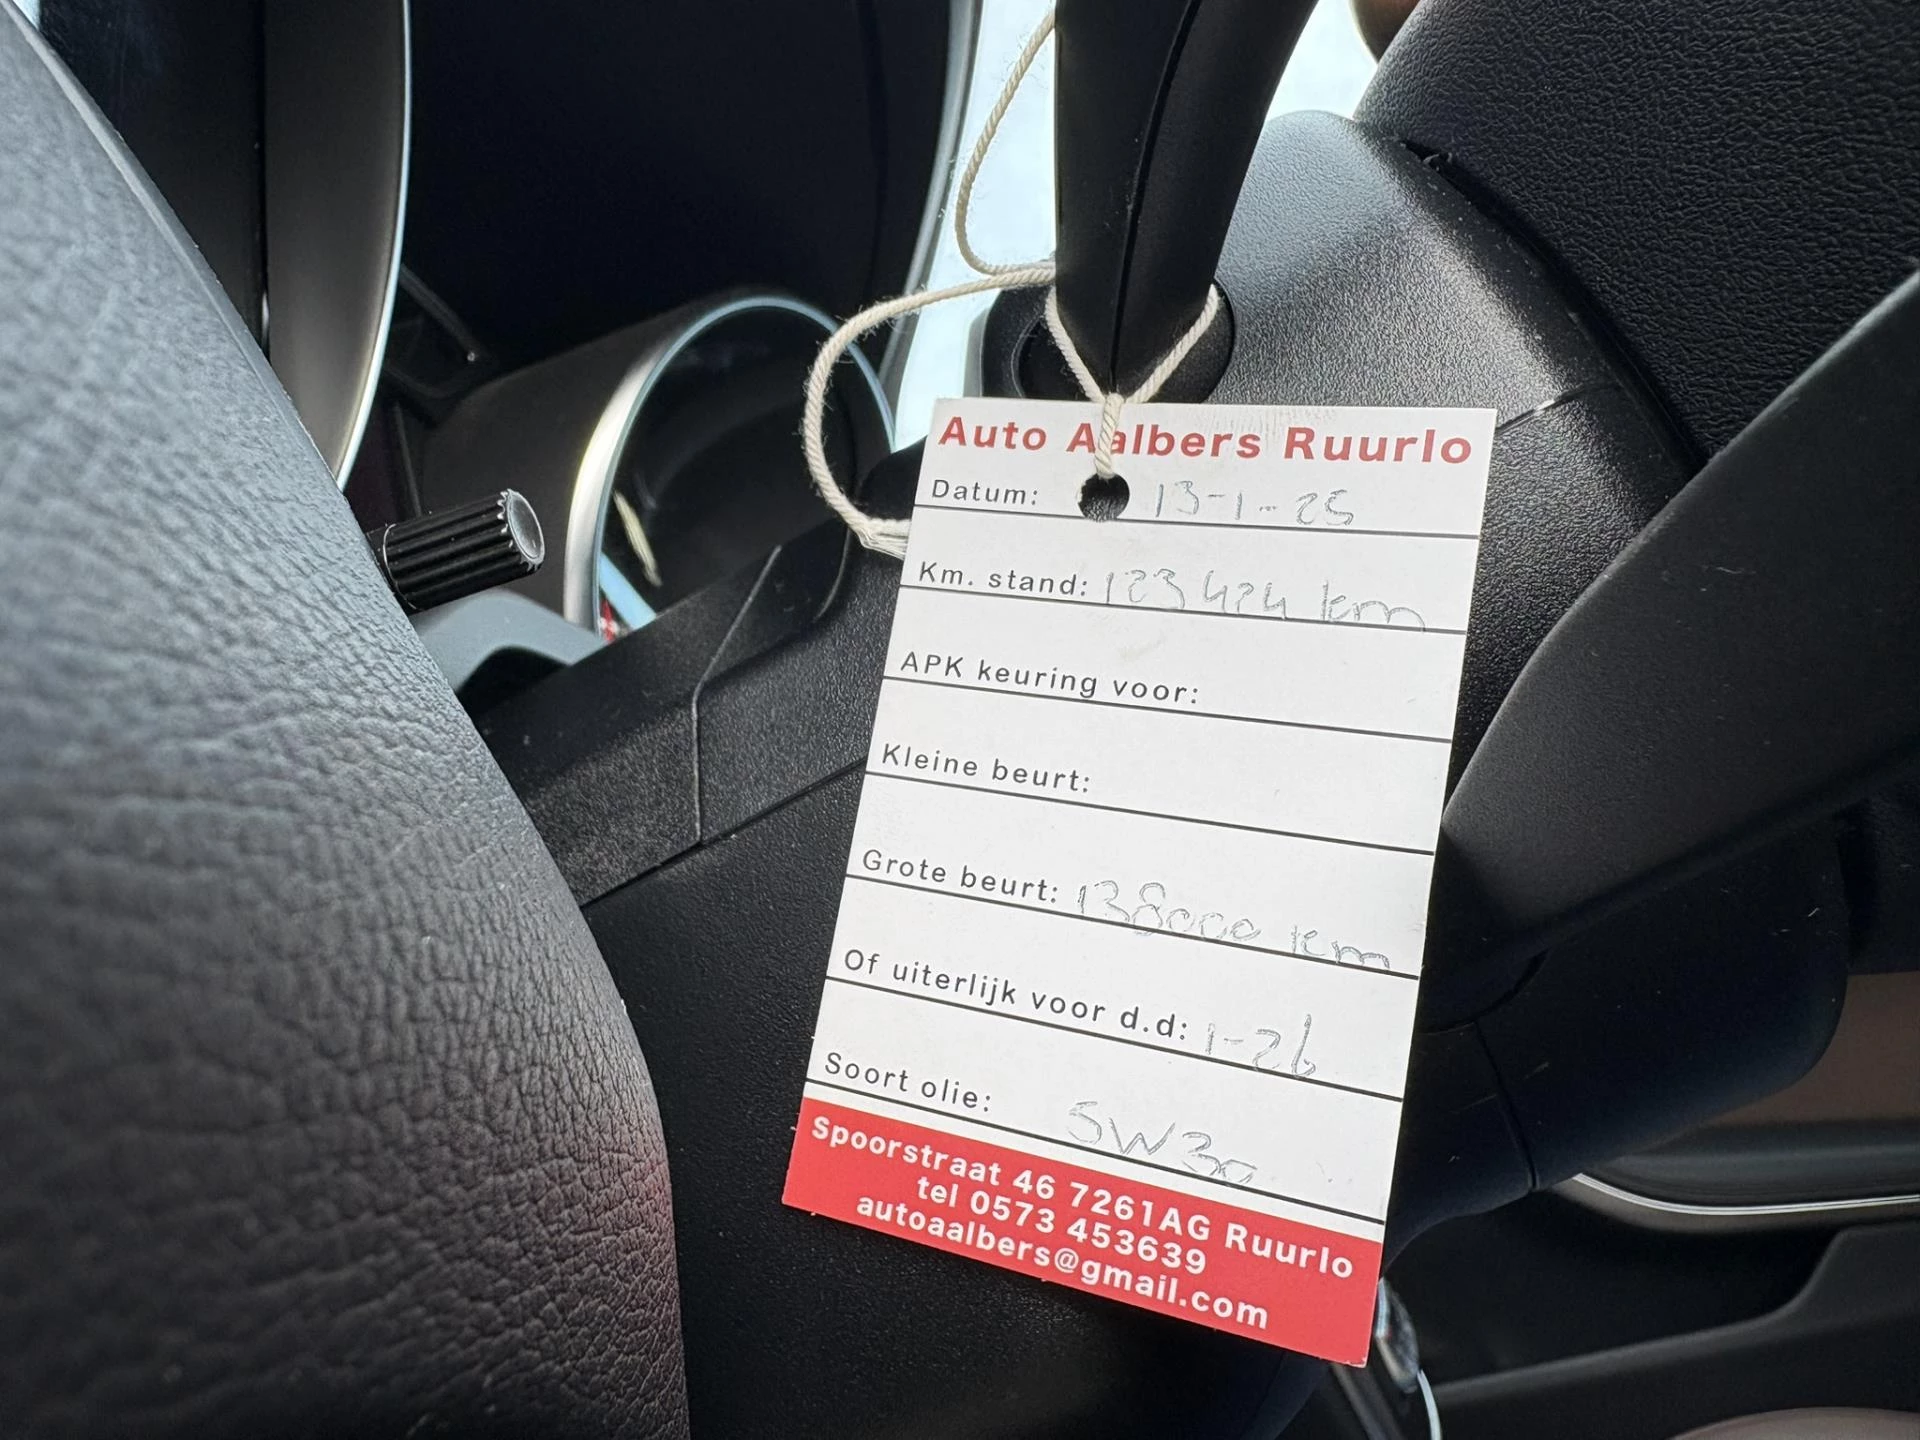 Auto Aalbers Ruurlo
Datum: 13-1-25
Km. stand: 123424 km
APK keuring voor:
Kleine beurt:
Grote beurt: 138000 km
Of uiterlijk voor d.d: 1-26
Soort olie: 5W30
Spoorstraat 46 7261AG Ruurlo
tel 0573 453639
autoaalbers@gmail.com